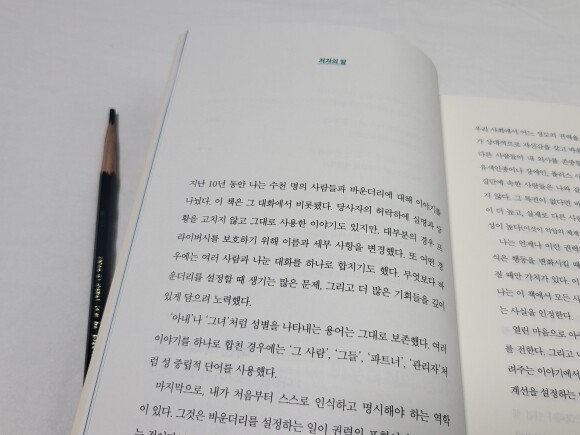 저자의 말
지난 10년 동안 나는 수천 명의 사람들과 바운더리에 대해 이야기를
나눴다. 이 책은 그 대화에서 비롯됐다. 당사자의 허락하에 실명과 상
황을 고치지 않고 그대로 사용한 이야기도 있지만, 대부분의 경우 프
라이버시를 보호하기 위해 이름과 세부 사항을 변경했다. 또 어떤 경
우에는 여러 사람과 나눈 대화를 하나로 합치기도 했다. 무엇보다 바
운더리를 설정할 때 생기는 많은 문제, 그리고 더 많은 기회들을 깊이
있게 담으려 노력했다.
‘아내’나 ‘그녀’처럼 성별을 나타내는 용어는 그대로 보존했다. 여러
이야기를 하나로 합친 경우에는 ‘그 사람’, ‘그들’, ‘파트너’, ‘관리자’처
럼 성 중립적 단어를 사용했다.
마지막으로, 내가 처음부터 스스로 인식하고 명시해야 하는 역학
이 있다. 그것은 바운더리를 설정하는 일이 권력의
우리 사회에서 어느 정도의 권력을
가 상대적으로 자신감을 갖고
다른 사람들이 내 의사를 존중할
유색인종이나 장애인, 플러스
집단에 속한 사람들은 나와
지 않다. 그 특권이 없다면
이 더 높고, 실제로 다른
성이 높다
나는 언제나 이런 권력
식은 행동을 변화시킬 때
질 때만 가치가 있다. 이
나는 이 책에서 모든 사
는 사실을 인정한다.
열린 마음으로
를 전한다. 그리고 나
려주는 이야기에서
계선을 설정하는